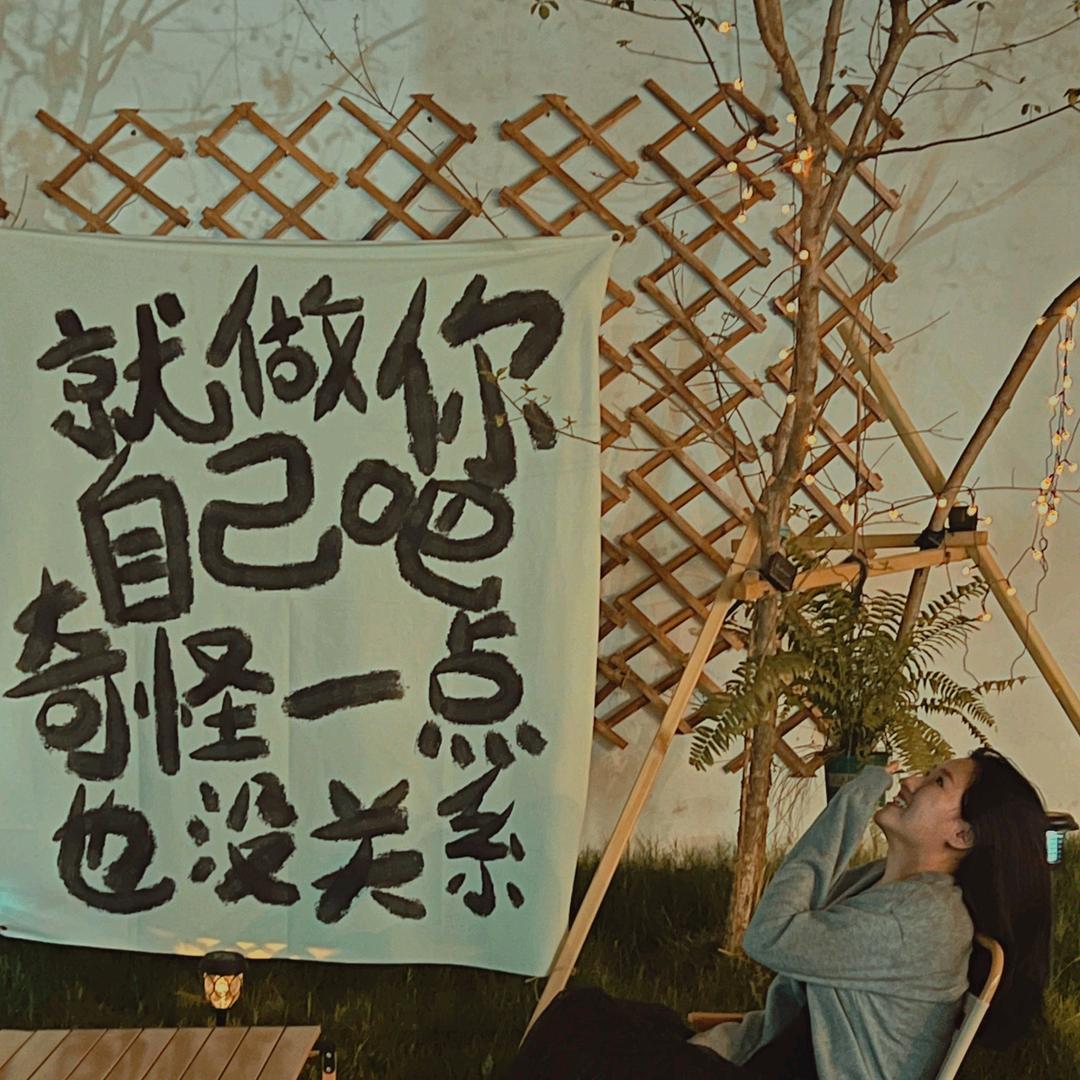 就做你
自己吧
奇怪一点
也没关系